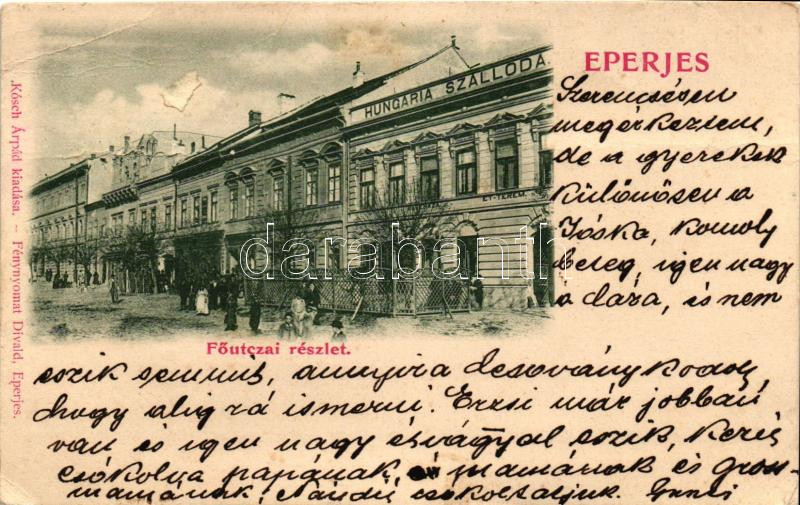 EPERJES
HUNGARIA SZÁLLODA.
ÉT-TEREM.
darabanth
Főutczai részlet.
Kósch Árpád kiadása. – Fénynyomat Divald, Eperjes.
Szerencsésen
megérkeztem,
de a gyerekek
különösen a
Jóska, komoly
beteg, igen nagy
a láza, és nem
eszik semmit, annyira lesoványkodott,
hogy alig rá ismerni. Erzsi már jobban
van és igen nagy étvágyal eszik, kezét
csókolva papának, mamának és gross-
mamának, Nándit csókoltatjuk.